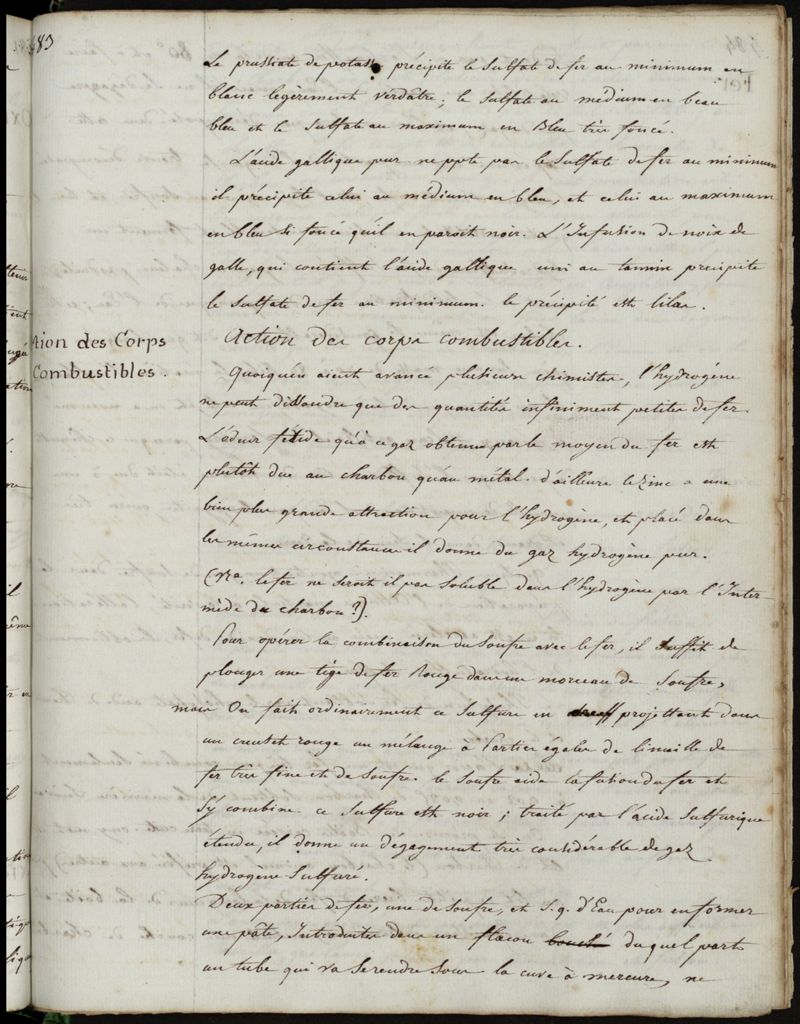 83
Le prussiate de potasse précipite le Sulfate de fer au minimum en
blanc legèrement verdâtre; le sulfate au médium en beau
bleu et le Sulfate au maximum en Bleu très foncé.
L'acide gallique pur ne ppte pas le Sulfate de fer au minimum
il précipite celui au médium en bleu, et celui au maximum
en bleu si foncé qu'il en paroit noir. L'Infusion de noix de
galle, qui contient l'acide gallique uni au tannin precipite
le Sulfate de fer au minimum. le précipité est lilas.
tion des Corps
Combustibles.
Action des corps combustibles.
Quoiqu'en aient avancé plusieurs chimistes, l'hydrogène
ne peut dissoudre que des quantités infiniment petites de fer.
L'odeur fétide qu'a ce gaz obtenu par le moyen du fer est
plutôt due au charbon qu'au métal. d'ailleurs le zinc a une
bien plus grande attraction pour l'hydrogène, et placé dans
les mêmes circonstances il donne du gaz hydrogène pur.
(Na. le fer ne seroit il pas soluble dans l'hydrogène par l'Inter-
mède du charbon?).
Pour opérer la combinaison du Soufre avec le fer, il suffit de
plonger une tige de fer Rouge dans un morceau de Soufre,
mais On fait ordinairement ce Sulfure en projettant dans
un creuset rouge un mélange à Parties égales de limaille de
fer très fine et de Soufre. le Soufre aide la fusion du fer et
s'y combine. ce Sulfure est noir; traité par l'acide Sulfurique
étendu, il donne un dégagement très considérable de gaz
hydrogène Sulfuré.
Deux parties de fer, une de Soufre, et S.q. d'Eau pour en former
une pâte, Introduites dans un flacon bouché duquel part
un tube qui va se rendre sous la cuve à mercure, ne